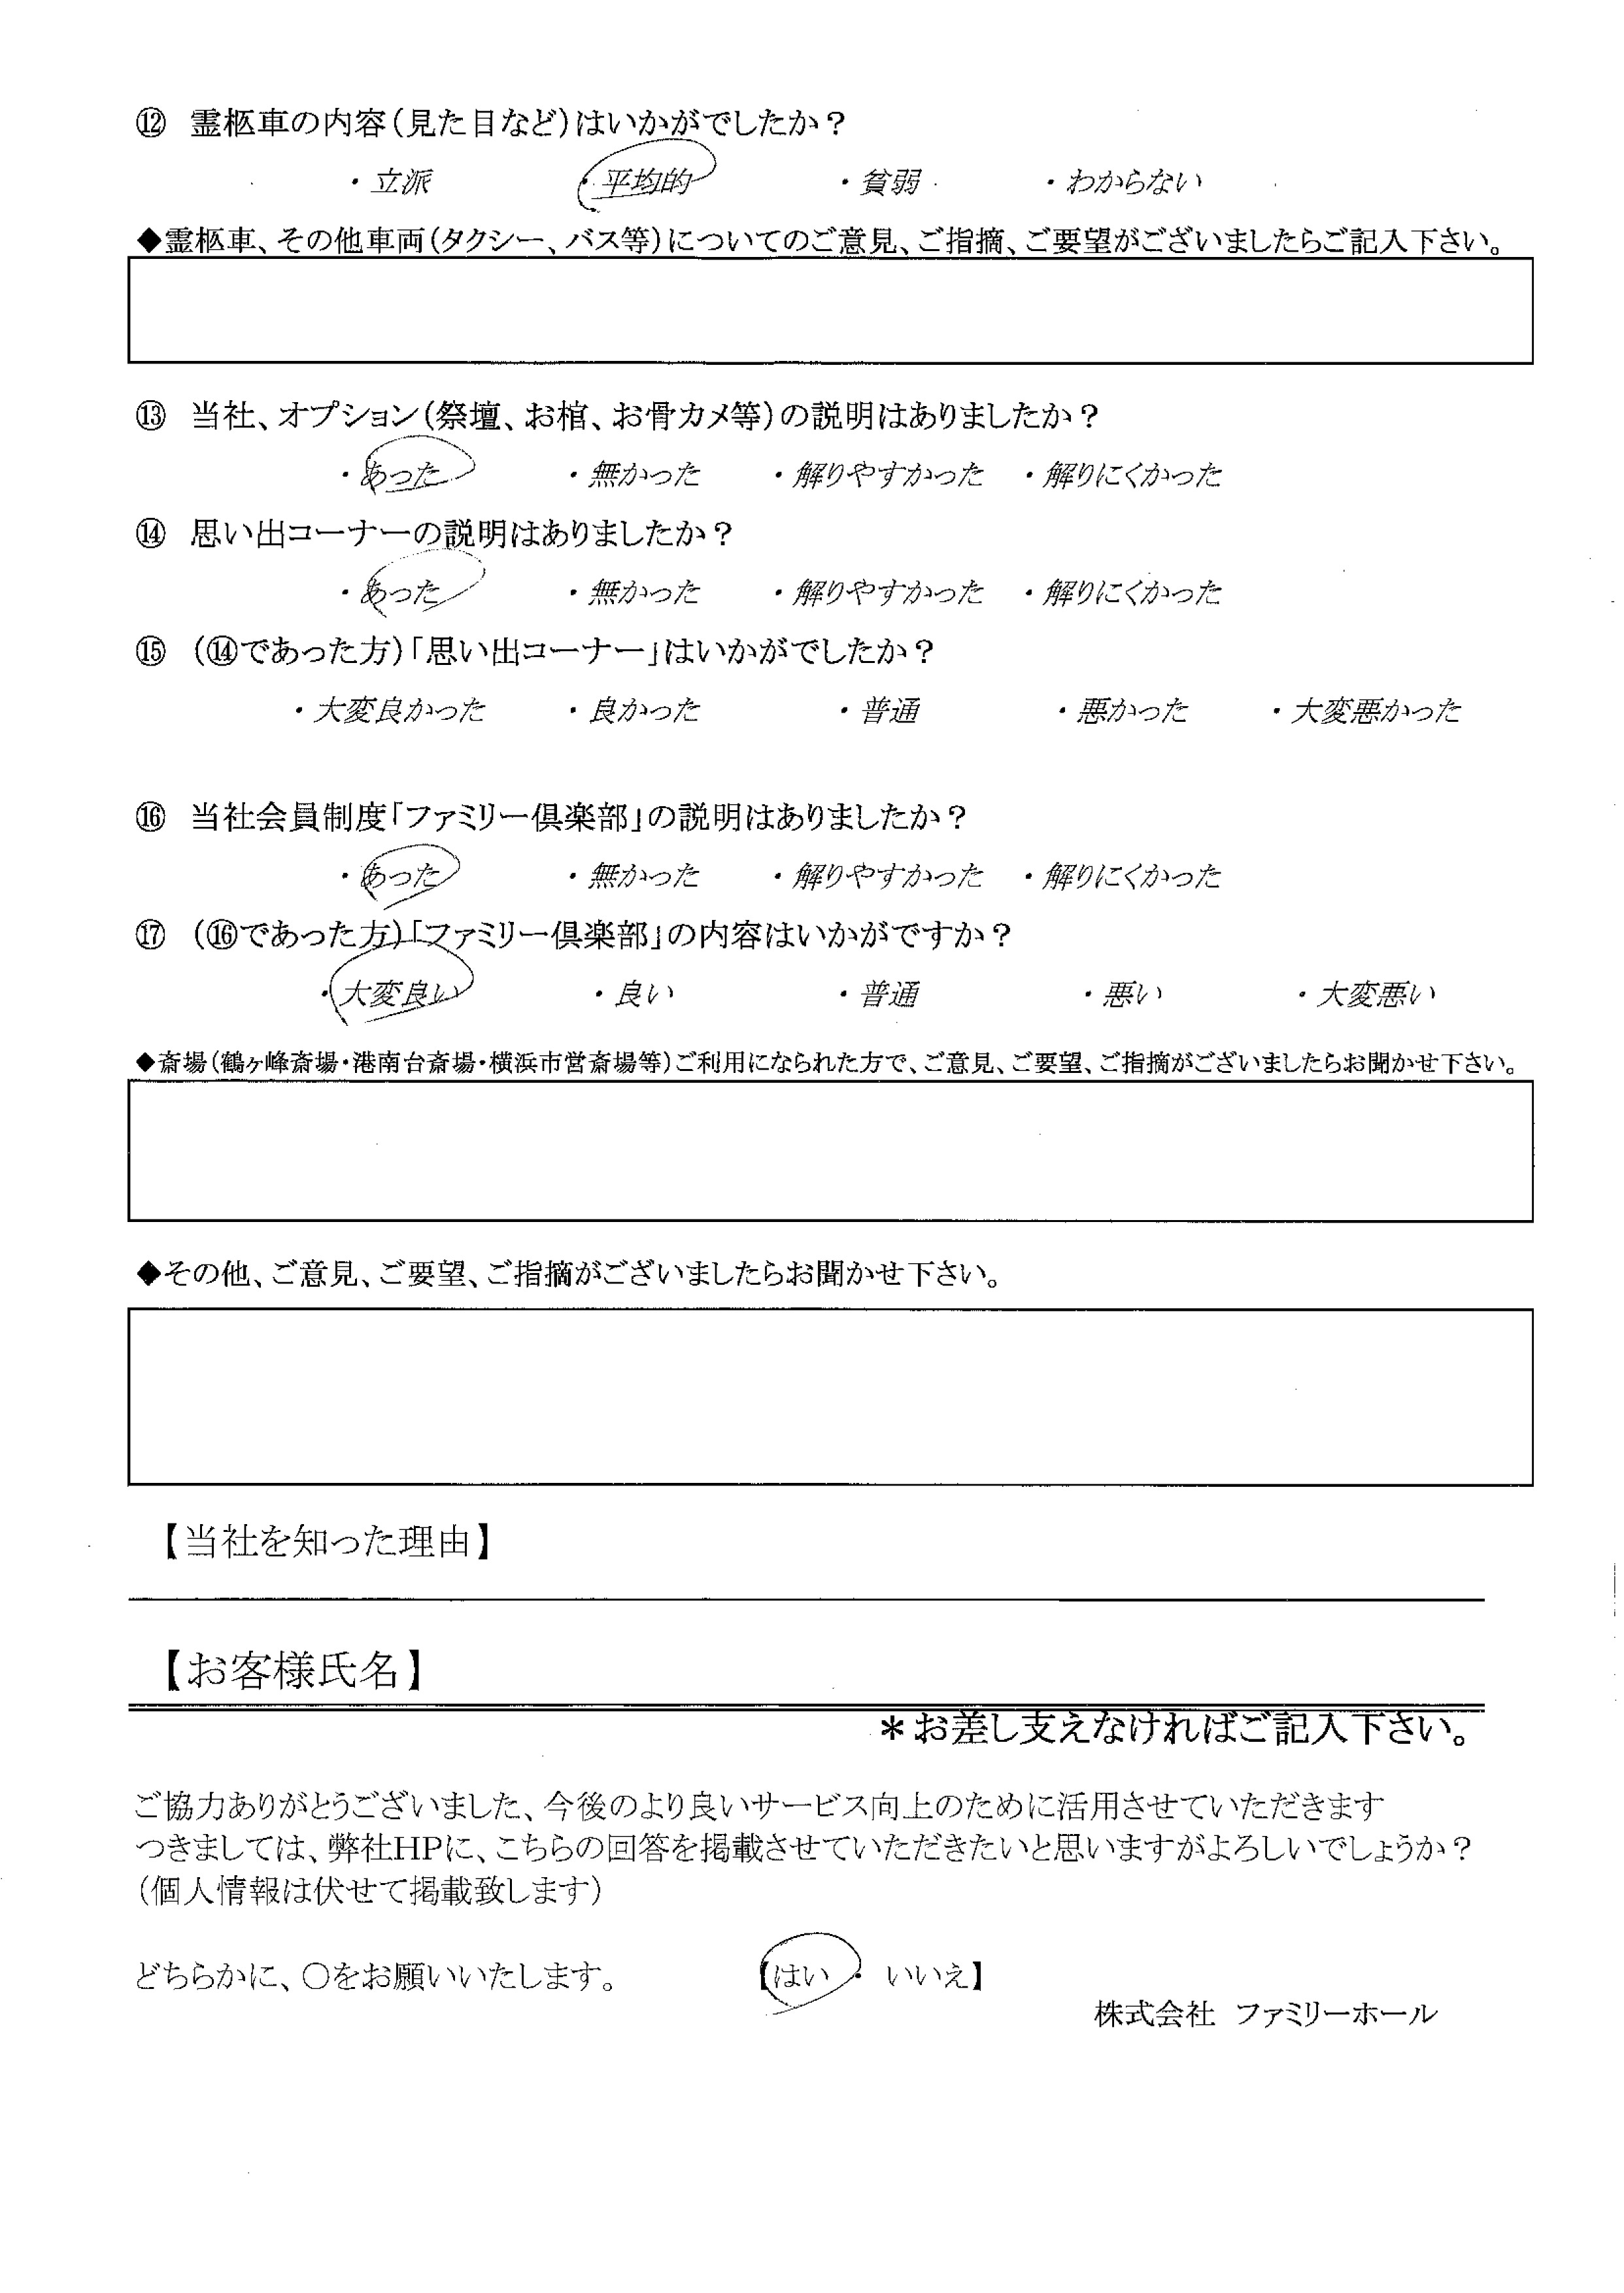 ⑫ 霊柩車の内容（見た目など）はいかがでしたか？
・立派 ・平均的 ・貧弱 ・わからない
◆霊柩車、その他車両（タクシー、バス等）についてのご意見、ご指摘、ご要望がございましたらご記入下さい。
⑬ 当社、オプション（祭壇、お棺、お骨カメ等）の説明はありましたか？
・あった ・無かった ・解りやすかった ・解りにくかった
⑭ 思い出コーナーの説明はありましたか？
・あった ・無かった ・解りやすかった ・解りにくかった
⑮ （⑭であった方）「思い出コーナー」はいかがでしたか？
・大変良かった ・良かった ・普通 ・悪かった ・大変悪かった
⑯ 当社会員制度「ファミリー倶楽部」の説明はありましたか？
・あった ・無かった ・解りやすかった ・解りにくかった
⑰ （⑯であった方）「ファミリー倶楽部」の内容はいかがですか？
・大変良い ・良い ・普通 ・悪い ・大変悪い
◆斎場（鶴ヶ峰斎場・港南台斎場・横浜市営斎場等）ご利用になられた方で、ご意見、ご要望、ご指摘がございましたらお聞かせ下さい。
◆その他、ご意見、ご要望、ご指摘がございましたらお聞かせ下さい。
【当社を知った理由】
【お客様氏名】
＊お差し支えなければご記入下さい。
ご協力ありがとうございました、今後のより良いサービス向上のために活用させていただきます
つきましては、弊社HPに、こちらの回答を掲載させていただきたいと思いますがよろしいでしょうか？
（個人情報は伏せて掲載致します）
どちらかに、〇をお願いいたします。 【はい ・ いいえ】
株式会社 ファミリーホール